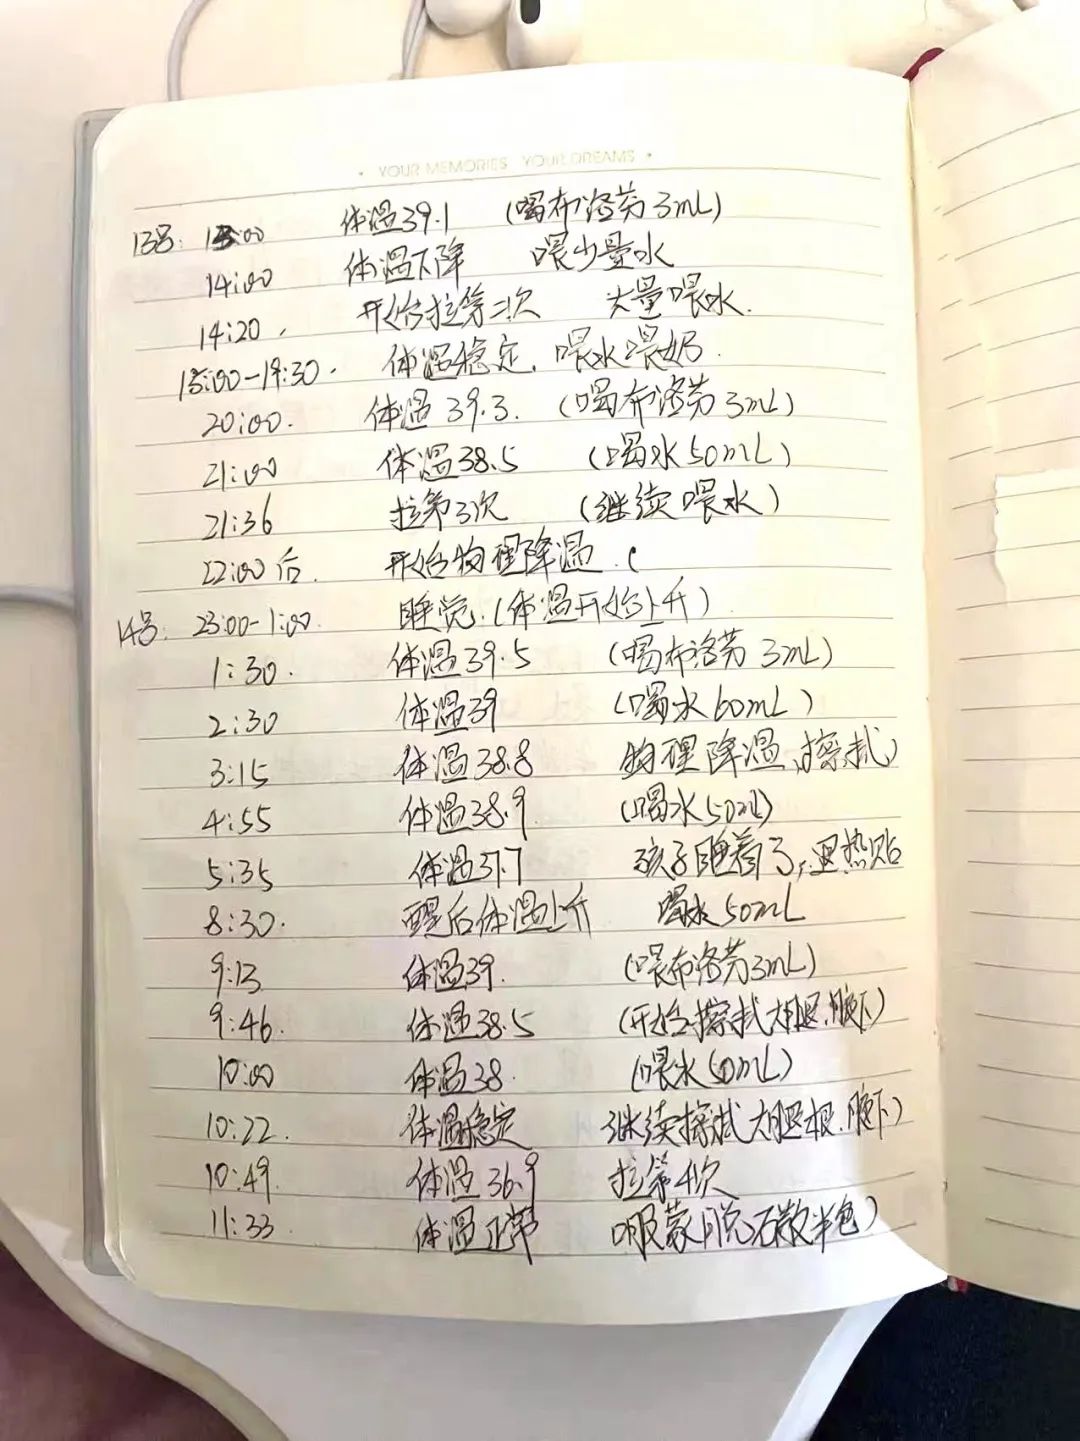 YOUR MEMORIES YOUR DREAMS
13号: 13:00 体温39.1 (喝布洛芬3mL)
14:00 体温下降 喂少量水
14:20. 开始拉第二次 大量喂水.
15:00-19:30. 体温稳定. 喂水喂奶.
20:00. 体温39.3. (喝布洛芬3mL)
21:00 体温38.5 (喝水50mL)
21:36 拉第3次 (继续喂水)
22:00后. 开始物理降温. (
14号: 23:00-1:00. 睡觉.(体温开始上升)
1:30. 体温39.5 (喝布洛芬3mL)
2:30 体温39 (喝水60mL)
3:15 体温38.8 物理降温,擦拭)
4:55 体温38.9. (喝水50ml)
5:35 体温37.7 孩子睡着了,退热贴
8:30. 醒后体温上升 喝水50mL
9:13 体温39. (喂布洛芬3mL)
9:46. 体温38.5 (开始擦拭大腿.腋下)
10:00 体温38. (喂水50mL)
10:22. 体温稳定 继续擦拭大腿根.腋下)
10:49. 体温36.9 拉第4次
11:33 体温正常 服蒙脱石散半包)